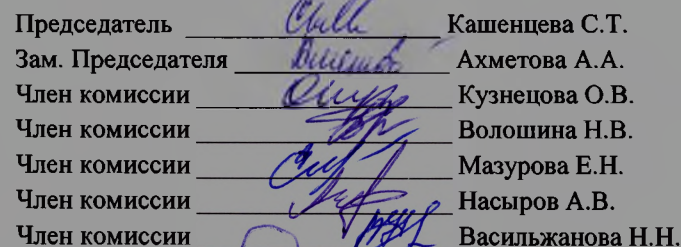 Председатель Кашенцева С.Т.
Зам. Председателя Ахметова А.А.
Член комиссии Кузнецова О.В.
Член комиссии Волошина Н.В.
Член комиссии Мазурова Е.Н.
Член комиссии Насыров А.В.
Член комиссии Васильжанова Н.Н.